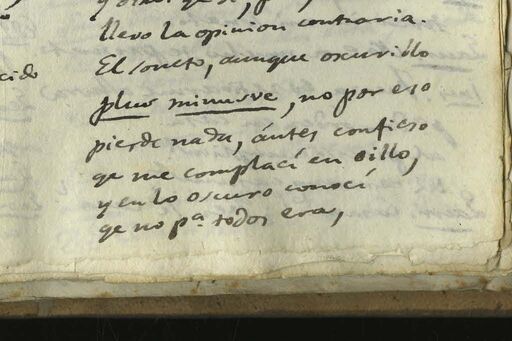 llevo la opinion contraria.
cido
El soneto, aunque oscurillo
plus minusve, no por eso
pierde nada, ántes confieso
qe me complací en oillo,
y en lo oscuro conocí
qe no pa. todos era,